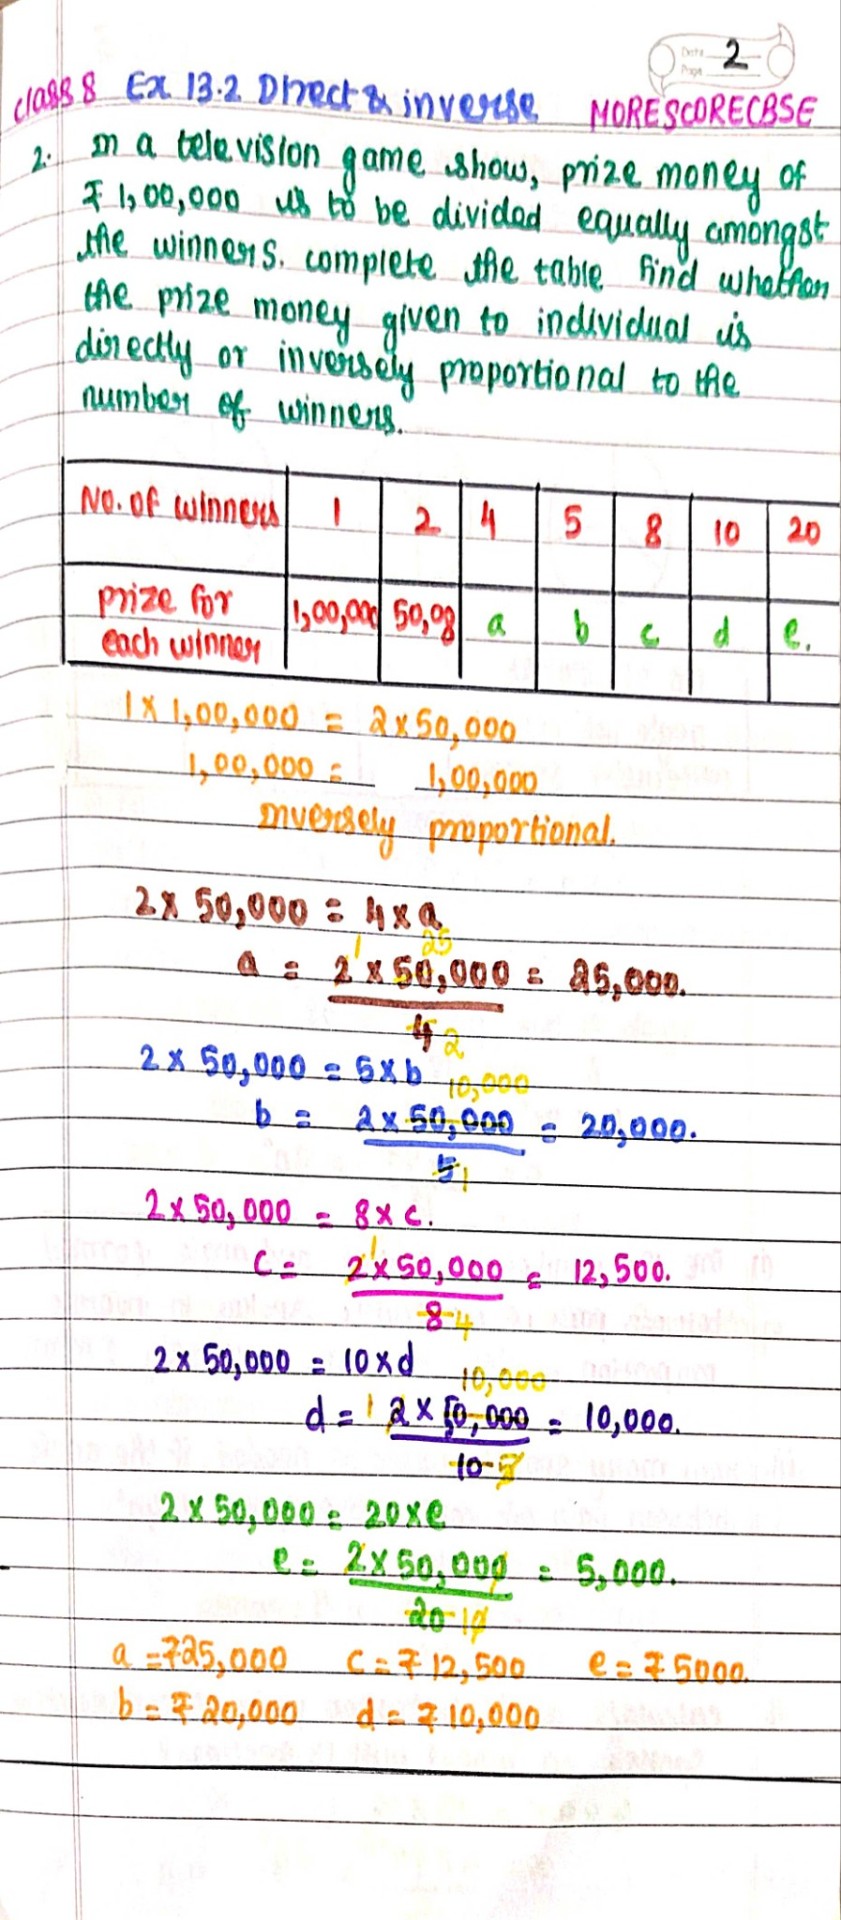 Date
Page
2
class 8 Ex 13.2 Direct & inverse MORESCORECBSE
2. In a television game show, prize money of
₹ 1,00,000 is to be divided equally amongst
the winners. complete the table find whether
the prize money given to individual is
directly or inversely proportional to the
number of winners.
No. of winners 1 2 4 5 8 10 20
prize for each winner 1,00,000 50,00 a b c d e.
1 x 1,00,000 = 2 x 50,000
1,00,000 = 1,00,000
inversely proportional.
2 x 50,000 = 4 x a
1 25
a = 2 x 50,000 = 25,000.
4 2
2 x 50,000 = 5 x b
10,000
b = 2 x 50,000 = 20,000.
5 1
2 x 50,000 = 8 x c.
1
c = 2 x 50,000 = 12,500.
8 4
2 x 50,000 = 10 x d
10,000
d = 1 2 x 50,000 = 10,000.
10 5
2 x 50,000 = 20 x e
e = 2 x 50,000 = 5,000.
20 10
a = ₹25,000 c = ₹ 12,500 e = ₹ 5000.
b = ₹ 20,000 d = ₹ 10,000